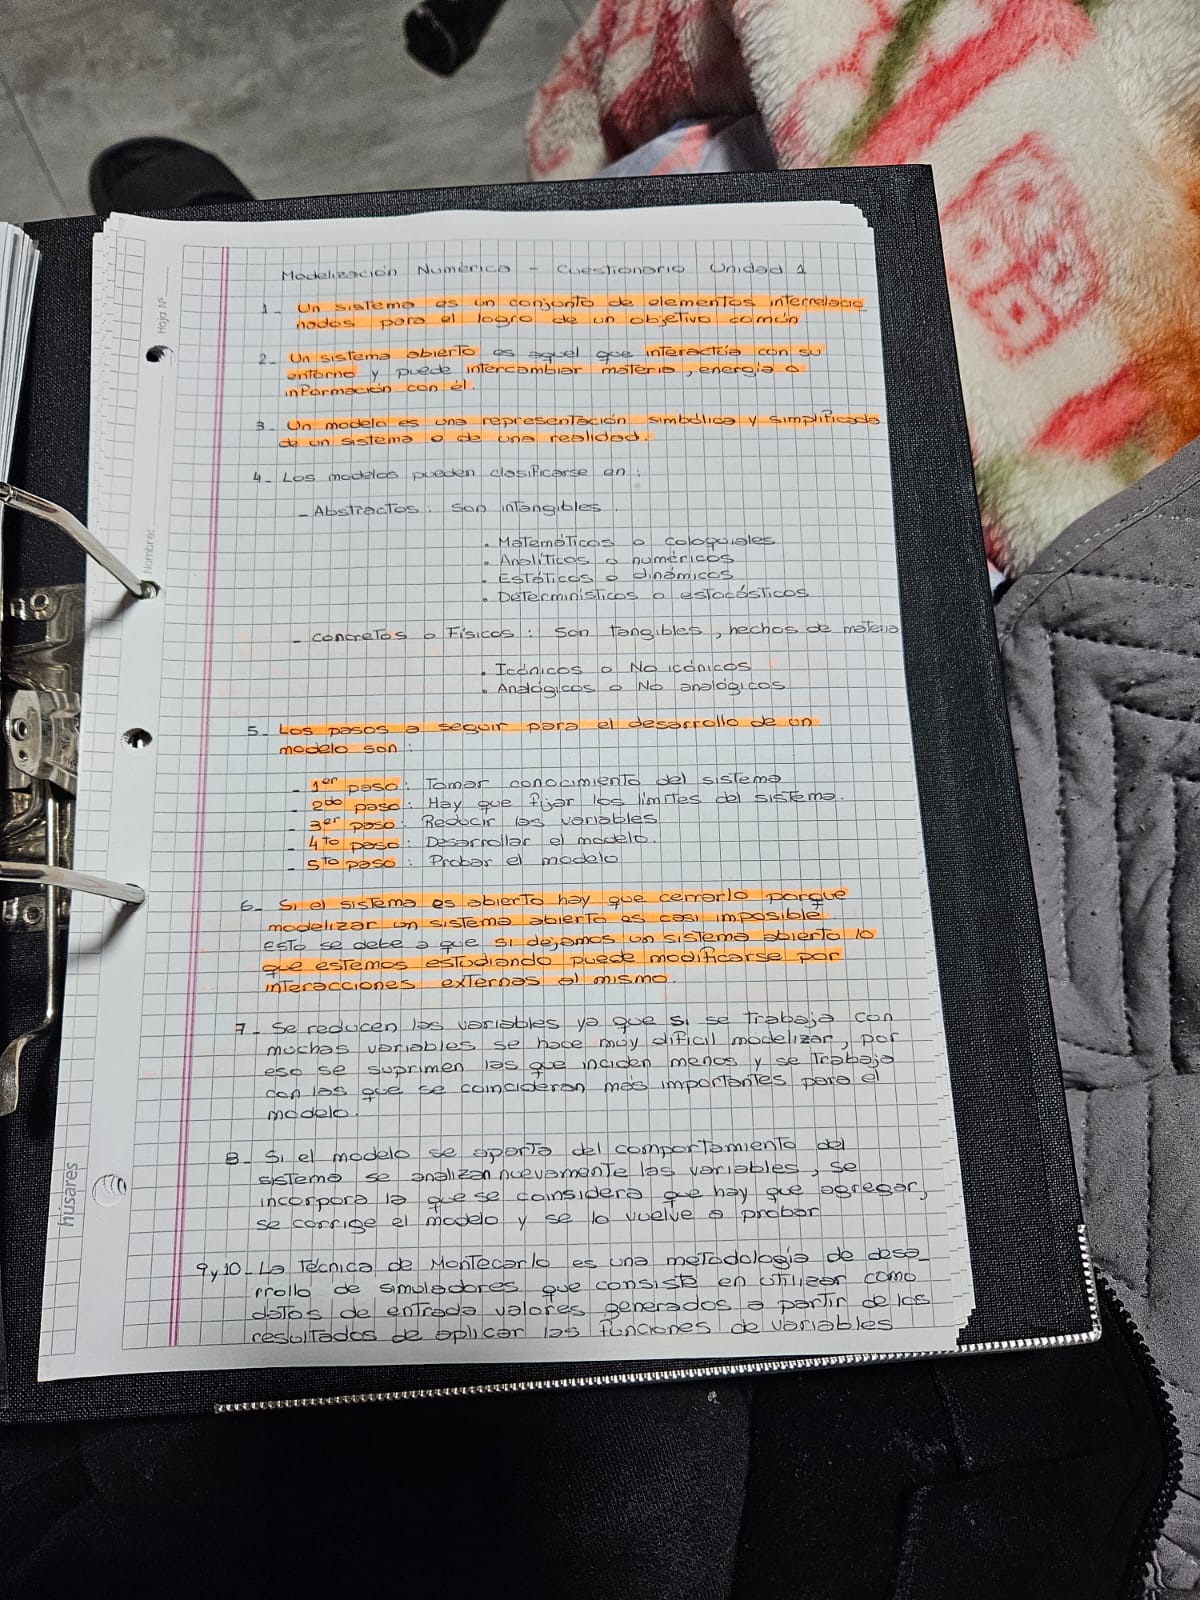 Modelización Numérica - Cuestionario Unidad 1
1_ Un sistema es un conjunto de elementos interrelacio_
nados para el logro de un objetivo común
2_ Un sistema abierto es aquel que interactúa con su
entorno y puede intercambiar materia, energía o
información con él.
3_ Un modelo es una representación simbólica y simplificada
de un sistema o de una realidad.
4_ Los modelos pueden clasificarse en :
_ Abstractos : son intangibles.
. Matemáticos o coloquiales
. Analíticos o numéricos
. Estáticos o dinámicos
. Determinísticos o estocásticos
_ Concretos o Físicos : Son tangibles, hechos de materia
. Icónicos o No icónicos
. Analógicos o No analógicos
5_ Los pasos a seguir para el desarrollo de un
modelo son :
_ 1er paso : Tomar conocimiento del sistema
_ 2do paso : Hay que fijar los límites del sistema.
_ 3er paso : Reducir las variables
_ 4to paso : Desarrollar el modelo.
_ 5to paso : Probar el modelo
6_ Si el sistema es abierto hay que cerrarlo porque
modelizar un sistema abierto es casi imposible
esto se debe a que si dejamos un sistema abierto lo
que estemos estudiando puede modificarse por
interacciones externas al mismo.
7_ Se reducen las variables ya que si se trabaja con
muchas variables se hace muy dificil modelizar, por
eso se suprimen las que inciden menos y se trabaja
con las que se coincideran más importantes para el
modelo.
8_ Si el modelo se aparta del comportamiento del
sistema se analizan nuevamente las variables, se
incorpora la que se coinsidera que hay que agregar,
se corrige el modelo y se lo vuelve a probar
9 y 10_ La Técnica de Montecarlo es una metodología de desa_
rrollo de simuladores que consiste en utilizar como
datos de entrada valores generados a partir de los
resultados de aplicar las funciones de variables
Hoja Nº
Nombre:
húsares